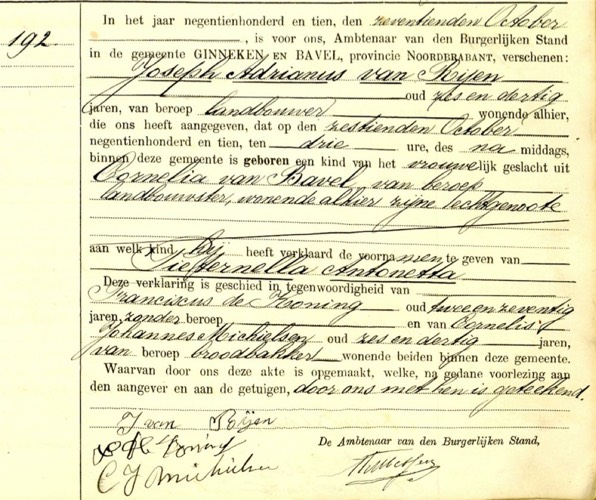 192
In het jaar negentienhonderd en tien, den zeventienden October
, is voor ons, Ambtenaar van den Burgerlijken Stand
in de gemeente GINNEKEN EN BAVEL, provincie NOORDBRABANT, verschenen:
Joseph Adrianus van Rijen
oud zes en dertig
jaren, van beroep landbouwer wonende alhier,
die ons heeft aangegeven, dat op den zestienden October
negentienhonderd en tien, ten drie ure, des na middags,
binnen deze gemeente is geboren een kind van het vrouwelijk geslacht uit
Cornelia van Bavel, van beroep
landbouwster, wonende alhier zijne echtgenoote
aan welk kind hij heeft verklaard de voornamen te geven van
Pieternella Antonetta
Deze verklaring is geschied in tegenwoordigheid van
Franciscus de Koning oud twee en zeventig
jaren, zonder beroep en van Cornelis
Johannes Michielsen oud zes en dertig jaren,
van beroep broodbakker wonende beiden binnen deze gemeente.
Waarvan door ons deze akte is opgemaakt, welke, na gedane voorlezing aan
den aangever en aan de getuigen, door ons met hen is geteekend.
J van Rijen
De Ambtenaar van den Burgerlijken Stand,
C J Michielsen